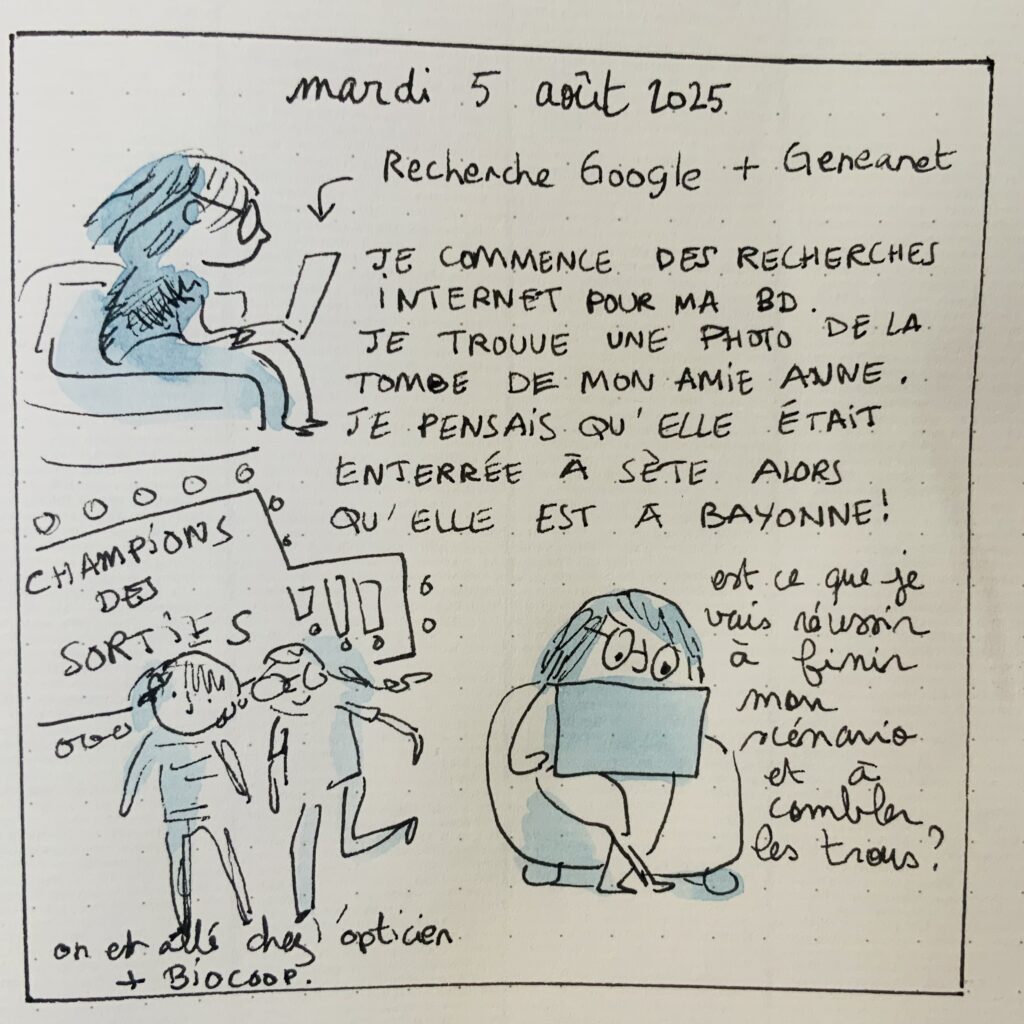 mardi 5 août 2025
Recherche Google + Geneanet
JE COMMENCE DES RECHERCHES
INTERNET POUR MA BD.
JE TROUVE UNE PHOTO DE LA
TOMBE DE MON AMIE ANNE.
JE PENSAIS QU'ELLE ÉTAIT
ENTERRÉE À SÈTE ALORS
QU'ELLE EST A BAYONNE!
CHAMPIONS
DES
SORTIES
!!!
on est allé chez l'opticien
+ BIOCOOP.
est ce que je
vais réussir
à finir
mon
scénario
et à
combler
les trous?